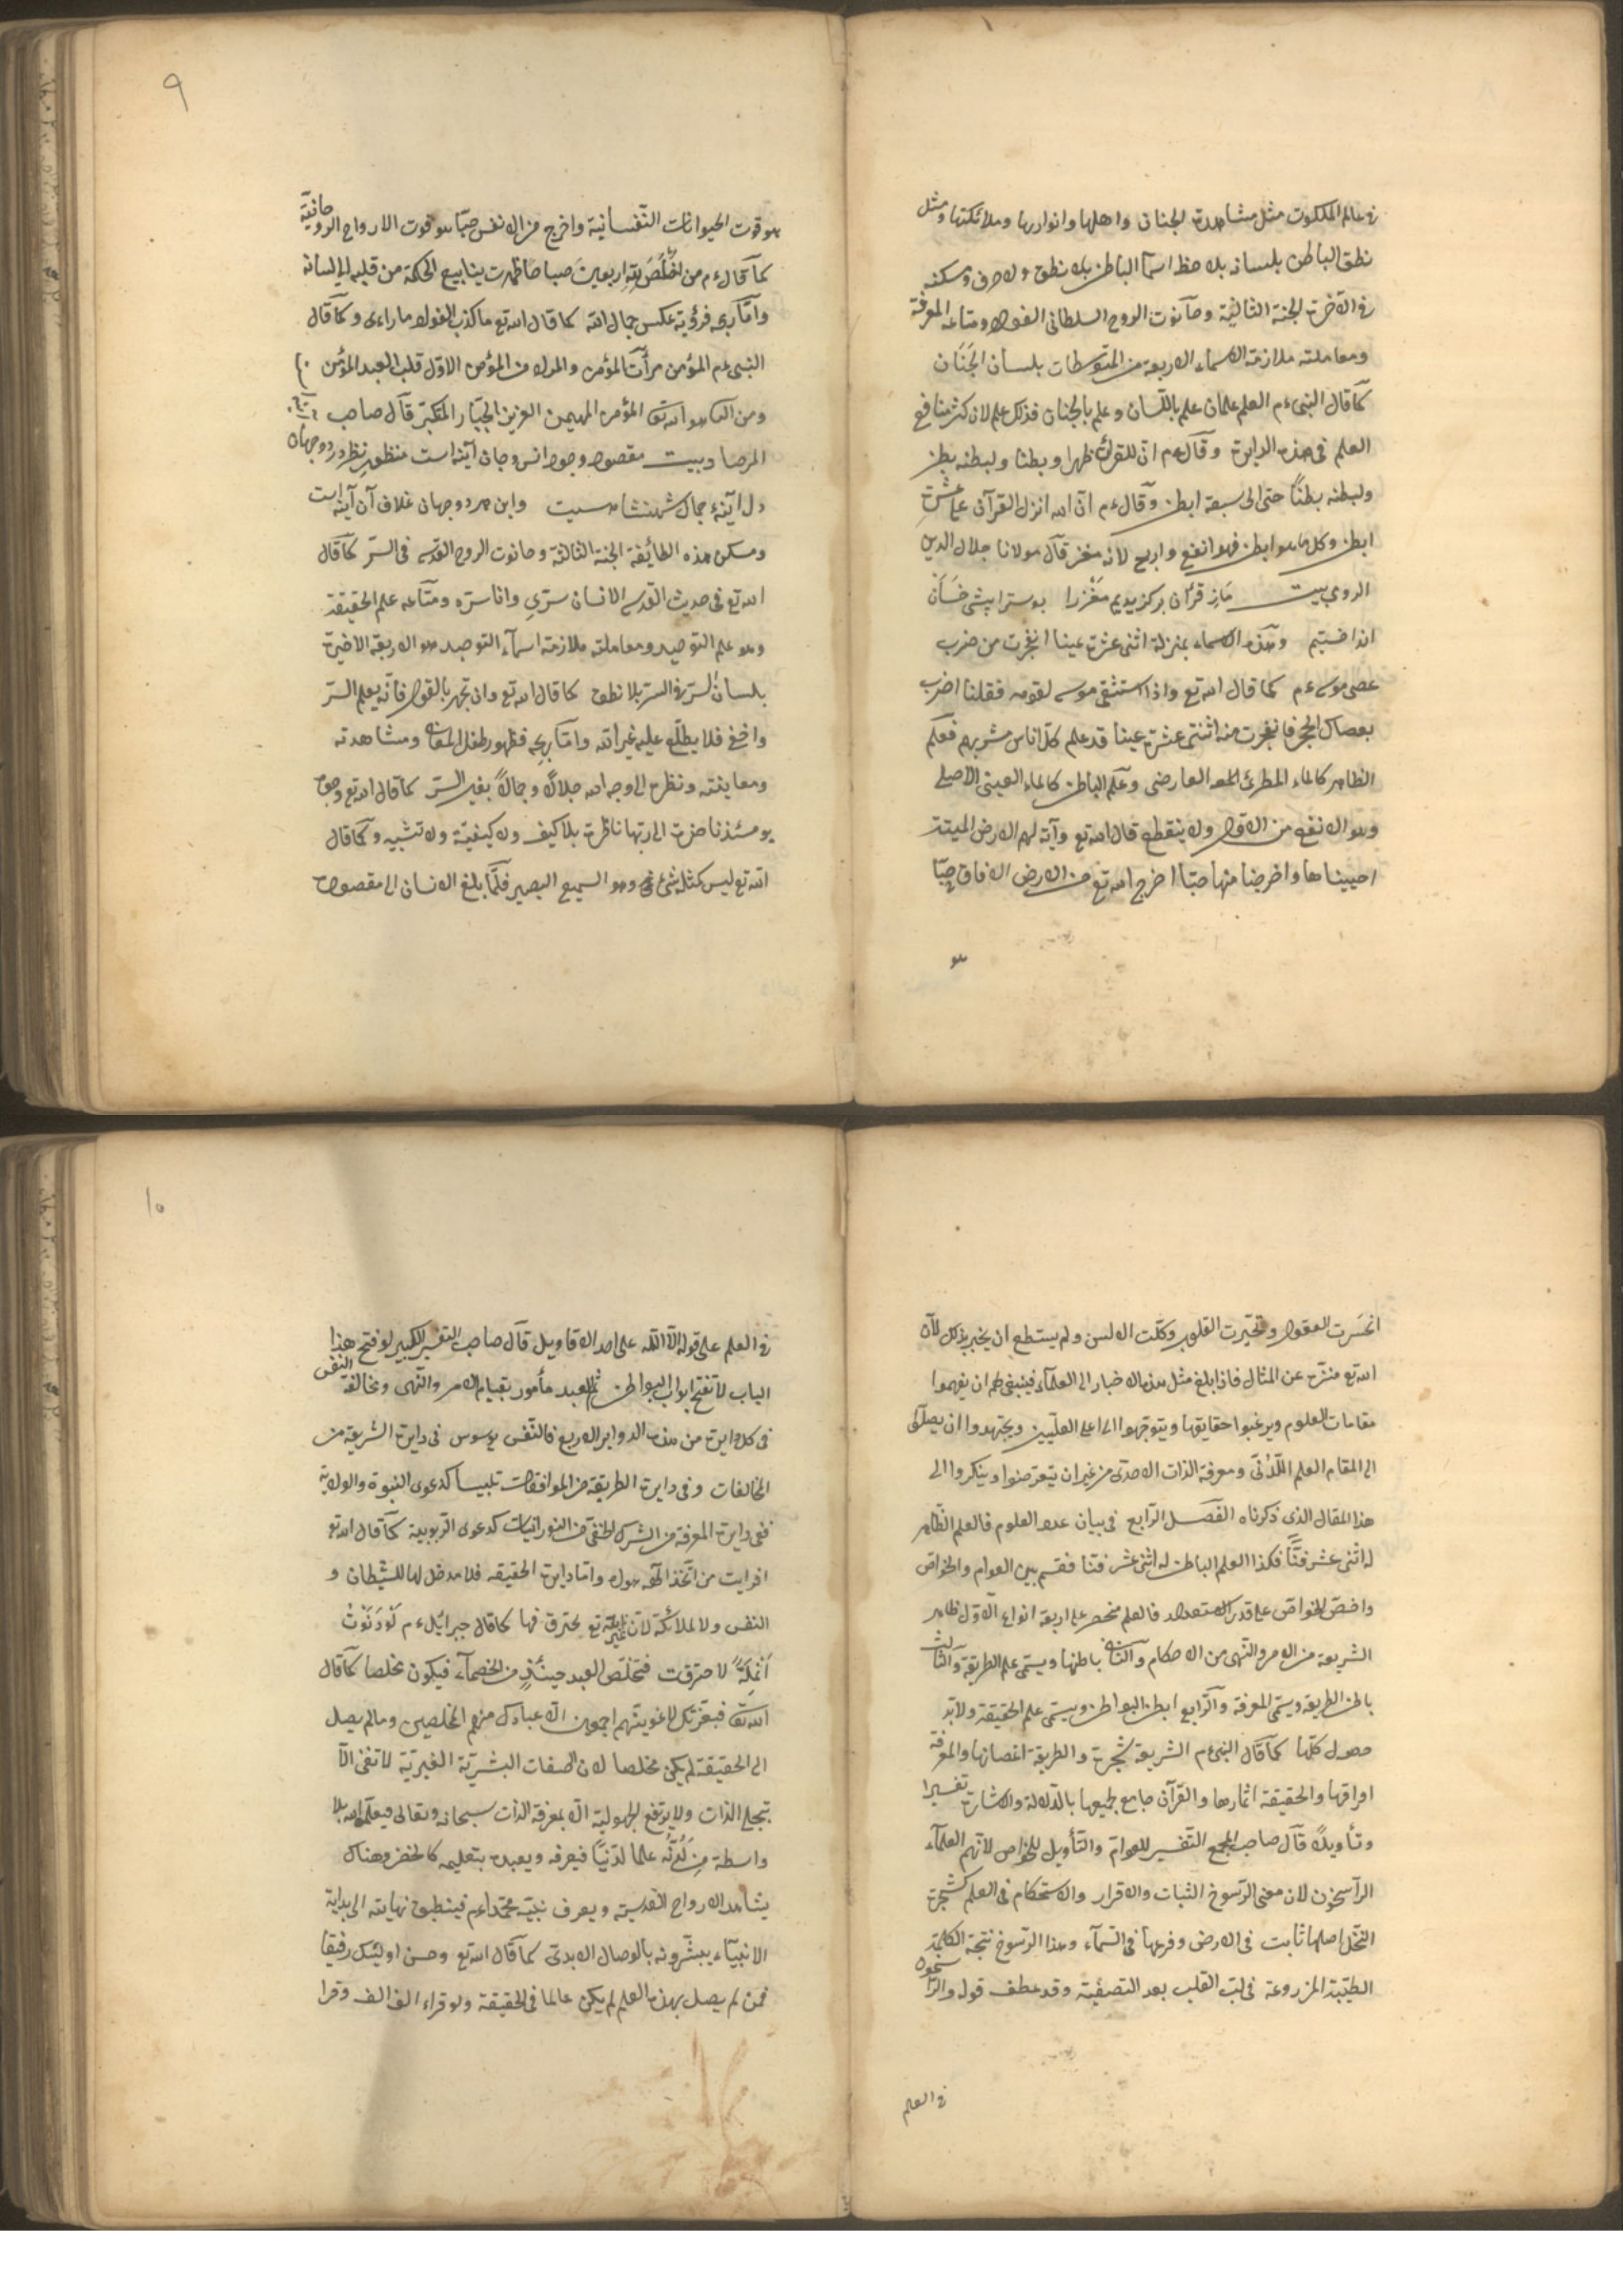 في عالم الملكوت مثل مشاهدة الجنان واهلها وانوارها وملائكتها ومثل
نطق الباطن بلسانه بلا حظ اسما الباطن بلا نطق ولا حرف ومسكنه
في الآخرة الجنة الثانية وحانوت الروح السلطاني الفواد ومتاعه المعرفة
ومعاملته ملازمة الاسماء الاربعة من المتوسطات بلسان الجَنَان
كما قال النبي ءم العلم علمان علم باللسان وعلم بالجنان فذلك علم لان كثر منافع
العلم في هذه الدايرة وقال ءم ان للقرآن ظهرا وبطنا ولبطنه بطن
ولبطنه بطنًا حتى الى سبعة ابطن وقال ءم ان الله انزل القرآن على عشرة
ابطن وكل ما هو ابطن فهو انفع واربح لانه مخز قال مولانا جلال الدين
الرومي بيت مَازِ قرآن بركزيديم مَغْزرا بوسترا پيشى خَسَان
انداختيم وهذه الاسماء بمنزلة اثنى عشرة عينا انفجرت من ضرب
عصى موسى ءم كما قال الله تع واذا استسقى موسى لقومه فقلنا اضرب
بعصاك الحجر فانفجرت منه اثنتى عشرة عينا قد علم كل اناس مشربهم فعلم
الظاهر كالماء المطرى العارضى وعلم الباطن كالماء العينى الاصلى
وهو الانفع من الاول ولا ينقطع قال الله تع وآية لهم الارض الميتة
احييناها واخرجنا منها حبّا اخرج الله تع من الارض الافاق حبّا
هو
٩
هو قوت الحيوانات النفسانية واخرج من الانفس حبّا هو قوت الارواح الروحانية
كما قال ءم من اخلَصَ لله اربعين صباحا ظهرت ينابيع الحكمة من قلبه الى لسانه
وامّا ربحه فرؤية عكس جمال الله كما قال الله تع ما كذب الفواد ما راءى وكما قال
النبي ءم المؤمن مرآت المؤمن والمراد من المؤمن الاول قلب العبد المؤمن
ومن الثانى هو الله تع المؤمن المهيمن العزيز الجبّار المتكبر قال صاحب
المرصاد بيت مقصود وجود انس وجان آينه است منظور نظر در دو جهان
دل آينهء جمال شهنشاهيست واين هر دو جهان غلاف آن آينه است
ومسكن هذه الطائفة الجنة الثالثة وحانوت الروح القدسى في السرّ كما قال
الله تع في حديث القدسى الانسان سرّى وانا سرّه ومتاعه علم الحقيقة
وهو علم التوحيد ومعاملته ملازمة اسماء التوحيد هو الاربعة الاخيرة
بلسان السرّ في السرّ بلا نطق كما قال الله تع وان تجهر بالقول فانّه يعلم السرّ
واخفى فلا يطلّع عليه غير الله وامّا ربحه فظهور طفل المعانى ومشاهدته
ومعاينته ونظره الى وجه الله جلالًا وجمالًا بغير السرّ كما قال الله تع وجوه
يومئذ ناضرة الى ربها ناظرة بلا كيف ولا كيفيّة ولا تشبيه وكما قال
الله تع ليس كمثله شئ وهو السميع البصير فلمّا بلغ الانسان الى مقصوده
انحسَرت العقول وتحيّرت القلوب وكلّت الالسن ولم يستطع ان يخبر بذلك لان
الله تع منزّه عن المثال فاذا بلغ مثل هذه الاخبار الى العلماء فينبغى لهم ان يفهموا
مقامات العلوم ويرغبوا حقايقها ويتوجّهوا الى اعلى العلّيين ويجتهدوا ان يصلوا
الى المقام العلم اللدُنّى ومعرفة الذات الاحدى من غير ان يتعرضوا وينكروا الى
هذا المقال الذى ذكرناه الفصل الرابع في بيان عدد العلوم فالعلم الظاهر
له اثنى عشر فنًّا فكذا العلم الباطن له اثنى عشر فنّا فقسم بين العوام والخواص
واخصّ الخواص على قدر الاستعداد فالعلم منحصر على اربعة انواع الاول ظاهر
الشريعة من الامر والنهى من الاحكام والثانى باطنها ويسمى علم الطريقة والثالث
باطن الطريقة ويسمى المعرفة والرابع ابطن البواطن ويسمى علم الحقيقة ولابدّ
حصول كلّها كما قال النبي ءم الشريعة شجرة والطريقة اغصانها والمعرفة
اوراقها والحقيقة اثمارها والقرآن جامع لجميعها بالدلالة والاشارة تفسيرا
وتأويلًا قال صاحب المجمع التفسير للعوام والتأويل للخواص لانهم العلماء
الراسخون لان معنى الرسوخ الثبات والاقرار والاستحكام في العلم كشجرة
النخل اصلها ثابت في الارض وفرعها في السماء وهذا الرسوخ نتيجة الكلمة
الطيّبة المزروعة في لبّ القلب بعد التصفية وقد عطف قوله والراسخون
في العلم
١٠
في العلم على قوله الا الله على احد الاقاويل قال صاحب التفسير الكبير لو فتح هذا
الباب لانفتح ابواب البواطن ثم العبد مأمور بقيام الامر والنهى ومخالفة النفس
في كل دايرة من هذه الدواير الاربع فالنفس يوسوس في دايرة الشريعة من
المخالفات وفي دايرة الطريقة من الموافقات تلبيسا كدعوى النبوة والولاية
ففى دايرة المعرفة من الشرك الخفى من النورانيات كدعوى الربوبية كما قال الله تع
افرايت من اتخذ الهه هواه وامّا دايرة الحقيقة فلا مدخل لها للشيطان و
النفس ولا لملائكة لان غير الله تع يحترق فيها كما قال جبرائيل ءم لَوْ دَنَوْتُ
اَنْمِلَةً لاحترقت فتخلّص العبد حينئذٍ من الخصماء فيكون مخلصا كما قال
الله تع فبعزتك لاغوينهم اجمعين الا عبادك منهم المخلصين وما لم يصل
الى الحقيقة لم يكن مخلصا لان الصفات البشريّة الغيريّة لا تفنى الّا
بتجلى الذات ولا يرتفع الجهولية الا بمعرفة الذات سبحانه وتعالى فيعلّمه الله بلا
واسطة مِن لَدُنْه علما لدنيًّا فيعرفه ويعبده بتعليمه كالخضر وهناك
يشاهد الارواح القدسية ويعرف نبيّه محمّدا ءم فينطبق نهايته الى بداية
الانبيآء يبشّرونه بالوصال الابدى كما قال الله تع وحسن اولئك رفيقا
فمن لم يصل بهذه العلم لم يكن عالما في الحقيقة ولو قراء الف الف وقرا